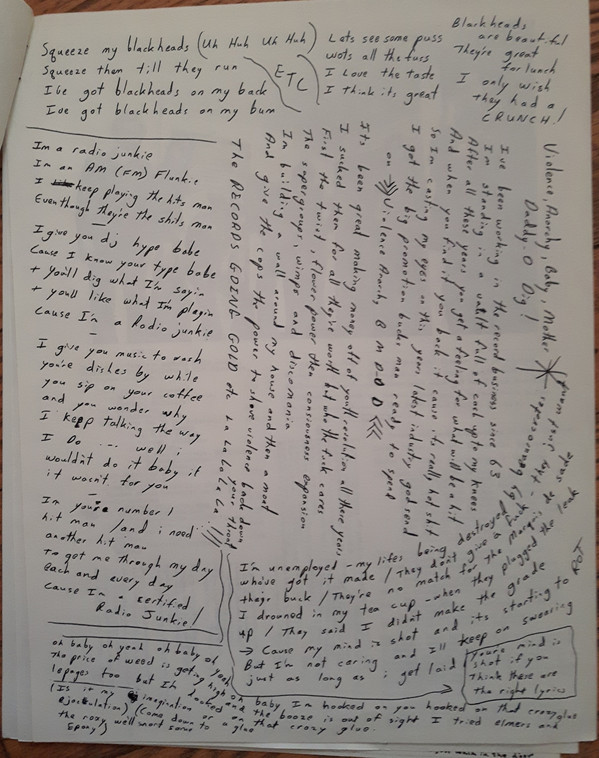 Squeeze my blackheads (Uh Huh Uh Huh)
Squeeze them till they run
I've got blackheads on my back
Ive got blackheads on my bum
ETC
Lets see some puss
wots all the fuss
I Love the taste
I think its great
Blackheads
are beautiful
They're great
for lunch
I only wish
they had a
CRUNCH!
Im a radio junkie
Im an AM (FM) Flunkie
I keep playing the hits man
Eventhough they're the shits man
I give you dj hype babe
Cause I know your type babe
+ you'll dig what I'm sayin
+ you'll like what I'm playin
Cause I'm a Radio junkie
I give you music to wash
you're dishes by while
you sip on your coffee
and you wonder why
I keep talking the way
I Do --- well i
wouldn't do it baby if
it wasn't for you
Im your number 1
hit man / and i need
another hit man
To got me through my day
each and every day
Cause Im a certified
Radio Junkie!
Violence, Anarchy, Baby, Mother
Daddy O Dig!
I've been working in the record business since 63
I'm standing in a vault full of cash up to my knees
After all these years you get a feeling for what will be a hit
And when you find it you back it cause its really hot shit
So Im casting my eyes on this years latest industry god send
I got the big promotion bucks man ready to spend
on Violence Anarchy B M D O D
Its been great making money off of youth revolution all these years
I sucked them for all they're worth but who the fuck cares
First the twist, flower power then consciousness expansion
The supergroups, wimps and discomania
Im building a wall around my house and then a moat
And give the cops the power to shove violence back down your throat
The RECORDS GOING GOLD etc La La La La La!!!!
I'm unemployed - my lifes being destroyed by
who've got it made / They don't give a fuck - they
thier buck / They're no match for the Marquis de sade
I drowned in my tea cup when they plugged the leak
up / They said I didnt make the grade
→ Cause my mind is shot and its starting to ROT
But I'm not caring and I'll keep on swearing
just as long as i get laid
Youre mind is
shot if you
Think these are
the right lyrics
oh baby oh yeah oh baby oh yeah
The price of weed is getting high oh baby I'm hooked on you hooked on that crazy glue
lepages too but I'm and the booze is out of sight I tried elmers and
(Is it my imagination or an
ejaculation) (Come down to glue that crazy glue.
the roxy we'll snort some
Epoxy)